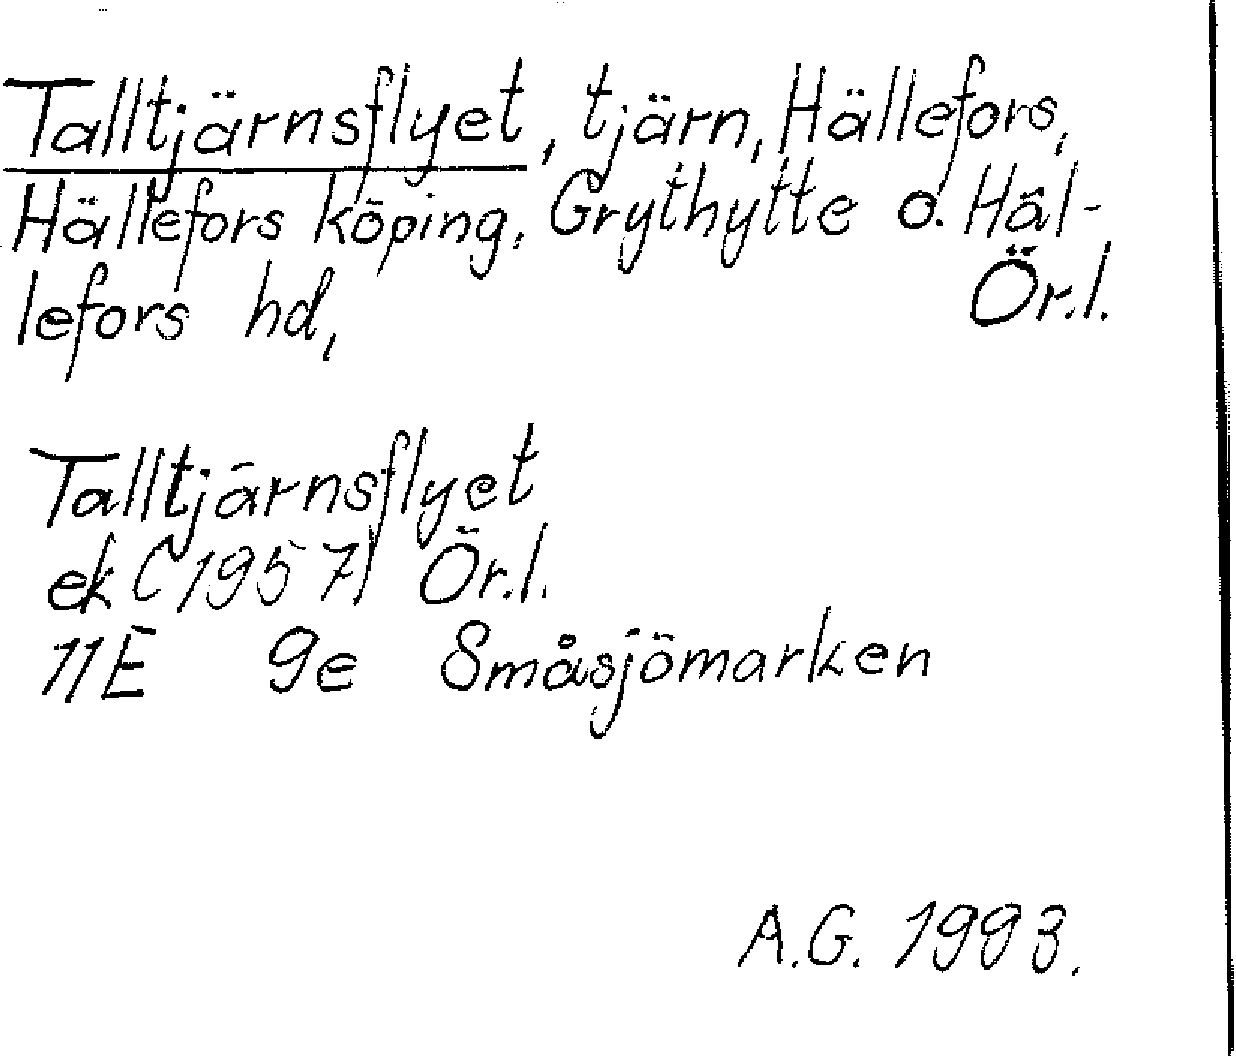 Talltjärnsflyet, tjärn, Hällefors,
Hällefors köping, Grythytte o. Häl-
lefors hd, Ör.l.
Talltjärnsflyet
ek (1957) Ör.l.
11E 9e Småsjömarken
A.G. 1993.